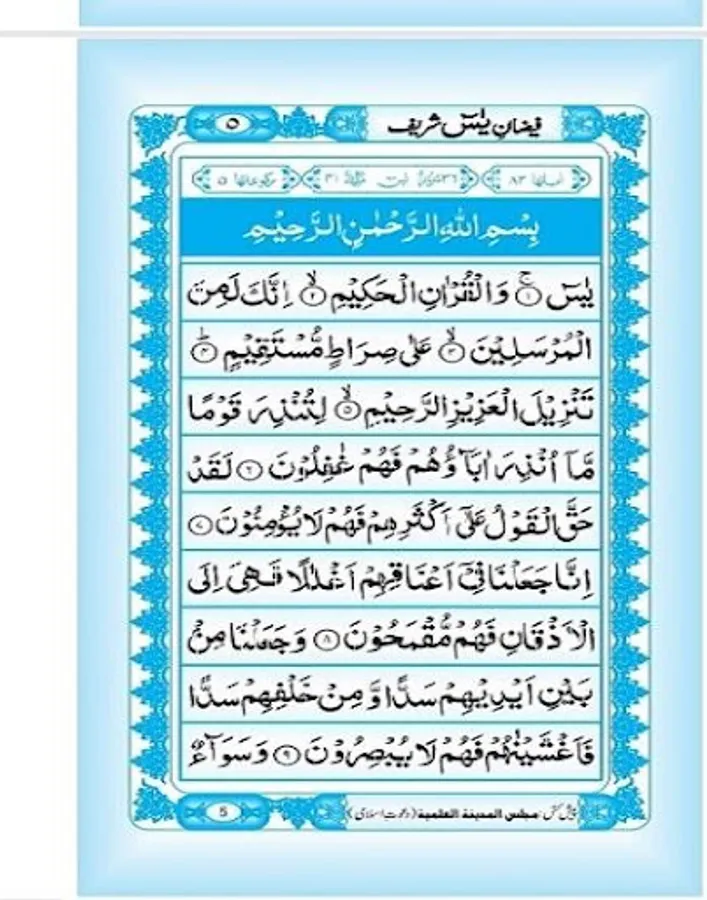 فیضانِ یٰسٓ شریف ٥
اٰیاتھا ٨٣ رکوعاتھا ٥
بِسْمِ اللّٰهِ الرَّحْمٰنِ الرَّحِیْمِ
یٰسٓ ۚ﴿١﴾ وَالْقُرْاٰنِ الْحَكِیْمِ ۙ﴿٢﴾ اِنَّكَ لَمِنَ
الْمُرْسَلِیْنَ ۙ﴿٣﴾ عَلٰى صِرَاطٍ مُّسْتَقِیْمٍ ؕ﴿٤﴾
تَنْزِیْلَ الْعَزِیْزِ الرَّحِیْمِ ۙ﴿٥﴾ لِتُنْذِرَ قَوْمًا
مَّاۤ اُنْذِرَ اٰبَآؤُهُمْ فَهُمْ غٰفِلُوْنَ ﴿٦﴾ لَقَدْ
حَقَّ الْقَوْلُ عَلٰۤى اَكْثَرِهِمْ فَهُمْ لَا یُؤْمِنُوْنَ ﴿٧﴾
اِنَّا جَعَلْنَا فِیْۤ اَعْنَاقِهِمْ اَغْلٰلًا فَهِیَ اِلَى
الْاَذْقَانِ فَهُمْ مُّقْمَحُوْنَ ﴿٨﴾ وَ جَعَلْنَا مِنْۢ
بَیْنِ اَیْدِیْهِمْ سَدًّا وَّ مِنْ خَلْفِهِمْ سَدًّا
فَاَغْشَیْنٰهُمْ فَهُمْ لَا یُبْصِرُوْنَ ﴿٩﴾ وَ سَوَآءٌ
پیش کش: مجلس المدینة العلمیة (دعوتِ اسلامی) 5